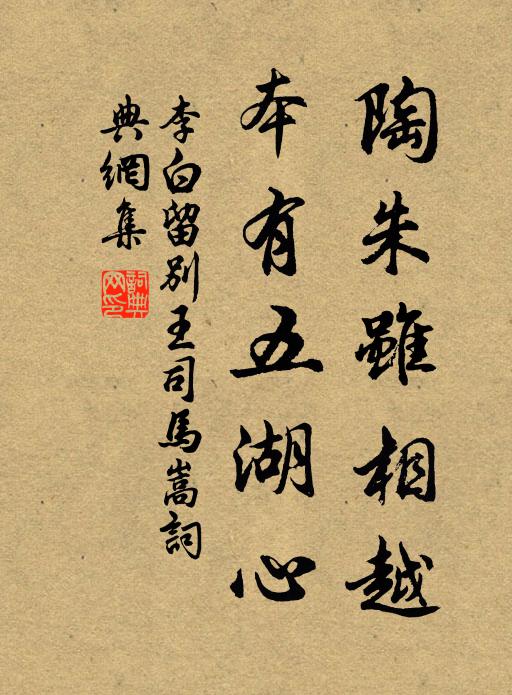 陶朱雖相越
本有五湖心
李白留別王司馬嵩詞
典網集
詞典网印